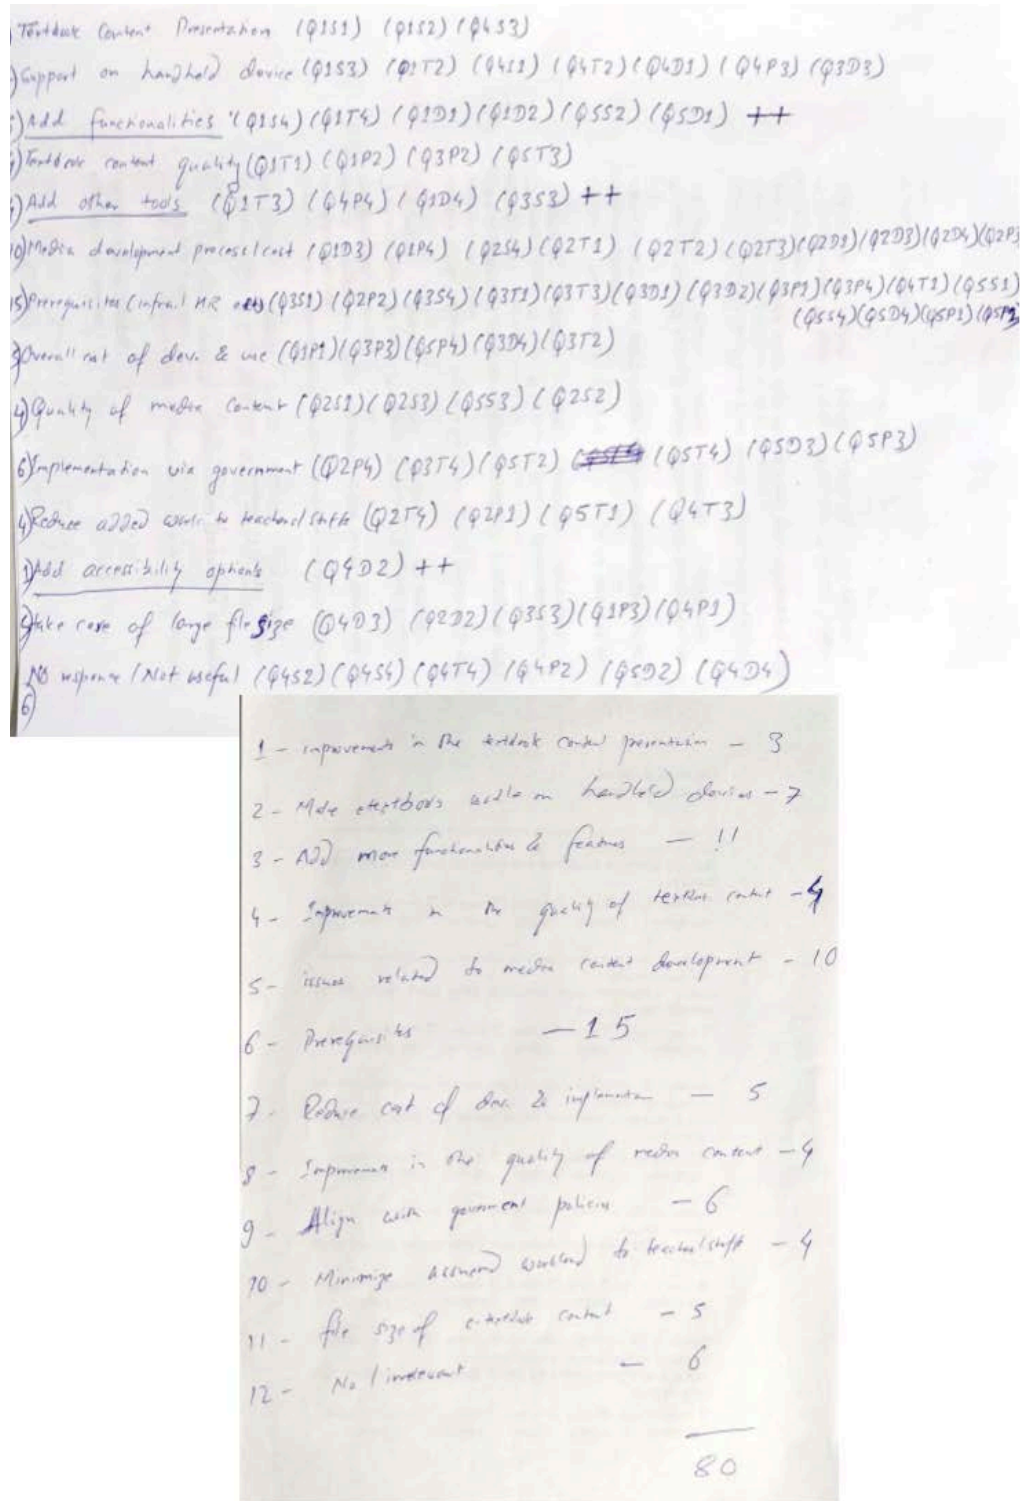 ) Textbook Content Presentation (Q1S1) (Q1S2) (Q4S3)
) Support on handheld device (Q1S3) (Q1T2) (Q4S1) (Q4T2) (Q4D1) (Q4P3) (Q3D3)
) Add functionalities (Q1S4) (Q1T4) (Q1D1) (Q1D2) (Q5S2) (Q5D1) ++
) Textbook content quality (Q1T1) (Q1P2) (Q3P2) (Q5T3)
) Add other tools (Q1T3) (Q4P4) (Q1D4) (Q3S3) ++
10) Media development process/cost (Q1D3) (Q1P4) (Q2S4) (Q2T1) (Q2T2) (Q2T3) (Q2D1) (Q2D3) (Q2D4) (Q2P3
15) Prerequisites (infra./ HR (Q3S1) (Q2P2) (Q3S4) (Q3T1) (Q3T3) (Q3D1) (Q3D2) (Q3P1) (Q3P4) (Q4T1) (Q5S1)
(Q5S4) (Q5D4) (Q5P1) (Q5P2
) Overall cost of dev. & use (Q1P1) (Q3P3) (Q5P4) (Q3D4) (Q3T2)
4) Quality of media Content (Q2S1) (Q2S3) (Q5S3) (Q2S2)
6) Implementation via government (Q2P4) (Q3T4) (Q5T2) (Q5T4) (Q5D3) (Q5P3)
4) Reduce added work to teachers/staff (Q2T4) (Q2P1) (Q5T1) (Q4T3)
1) Add accessibility options (Q4D2) ++
5) take care of large file size (Q4D3) (Q2D2) (Q3S3) (Q1P3) (Q4P1)
No response / Not useful (Q4S2) (Q4S4) (Q4T4) (Q4P2) (Q5D2) (Q4D4)
6)
1 - improvements in the textbook content presentation - 3
2 - Make etextbooks usable on handheld devices - 7
3 - Add more functionalities & features - 11
4 - Improvements in the quality of textbook content - 4
5 - issues related to media content development - 10
6 - Prerequisites - 15
7 - Reduce cost of dev. & implementation - 5
8 - Improvements in the quality of media content - 4
9 - Align with government policies - 6
10 - Minimize assumed workload to teacher/staff - 4
11 - file size of e-textbook content - 5
12 - No / irrelevant - 6
80